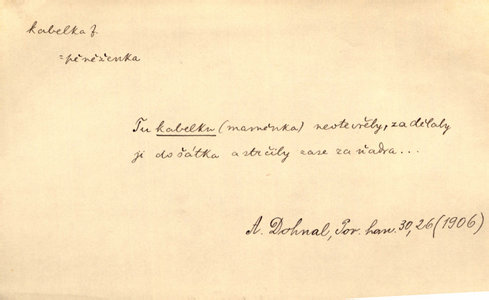 kabelka f.
= peněženka
Tu kabelku (maměnka) neotevřely, zadělaly
ji do šátka a strčily zase za ňadra...
A. Dohnal, Pov. han. 30, 26 (1906)